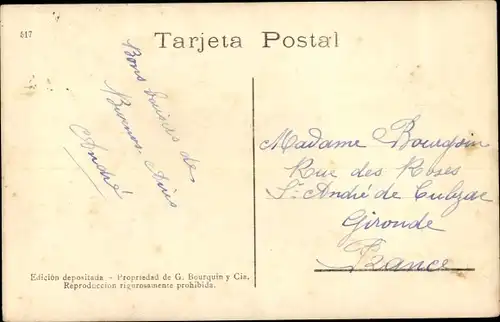 517
Tarjeta Postal
Bons baisers de
Buenos-Aires
André
Madame Bourgoin
Rue des Roses
St André de Cubzac
Gironde
France
Edición depositada - Propriedad de G. Bourquin y Cia.
Reproduccion rigorosamente prohibida.